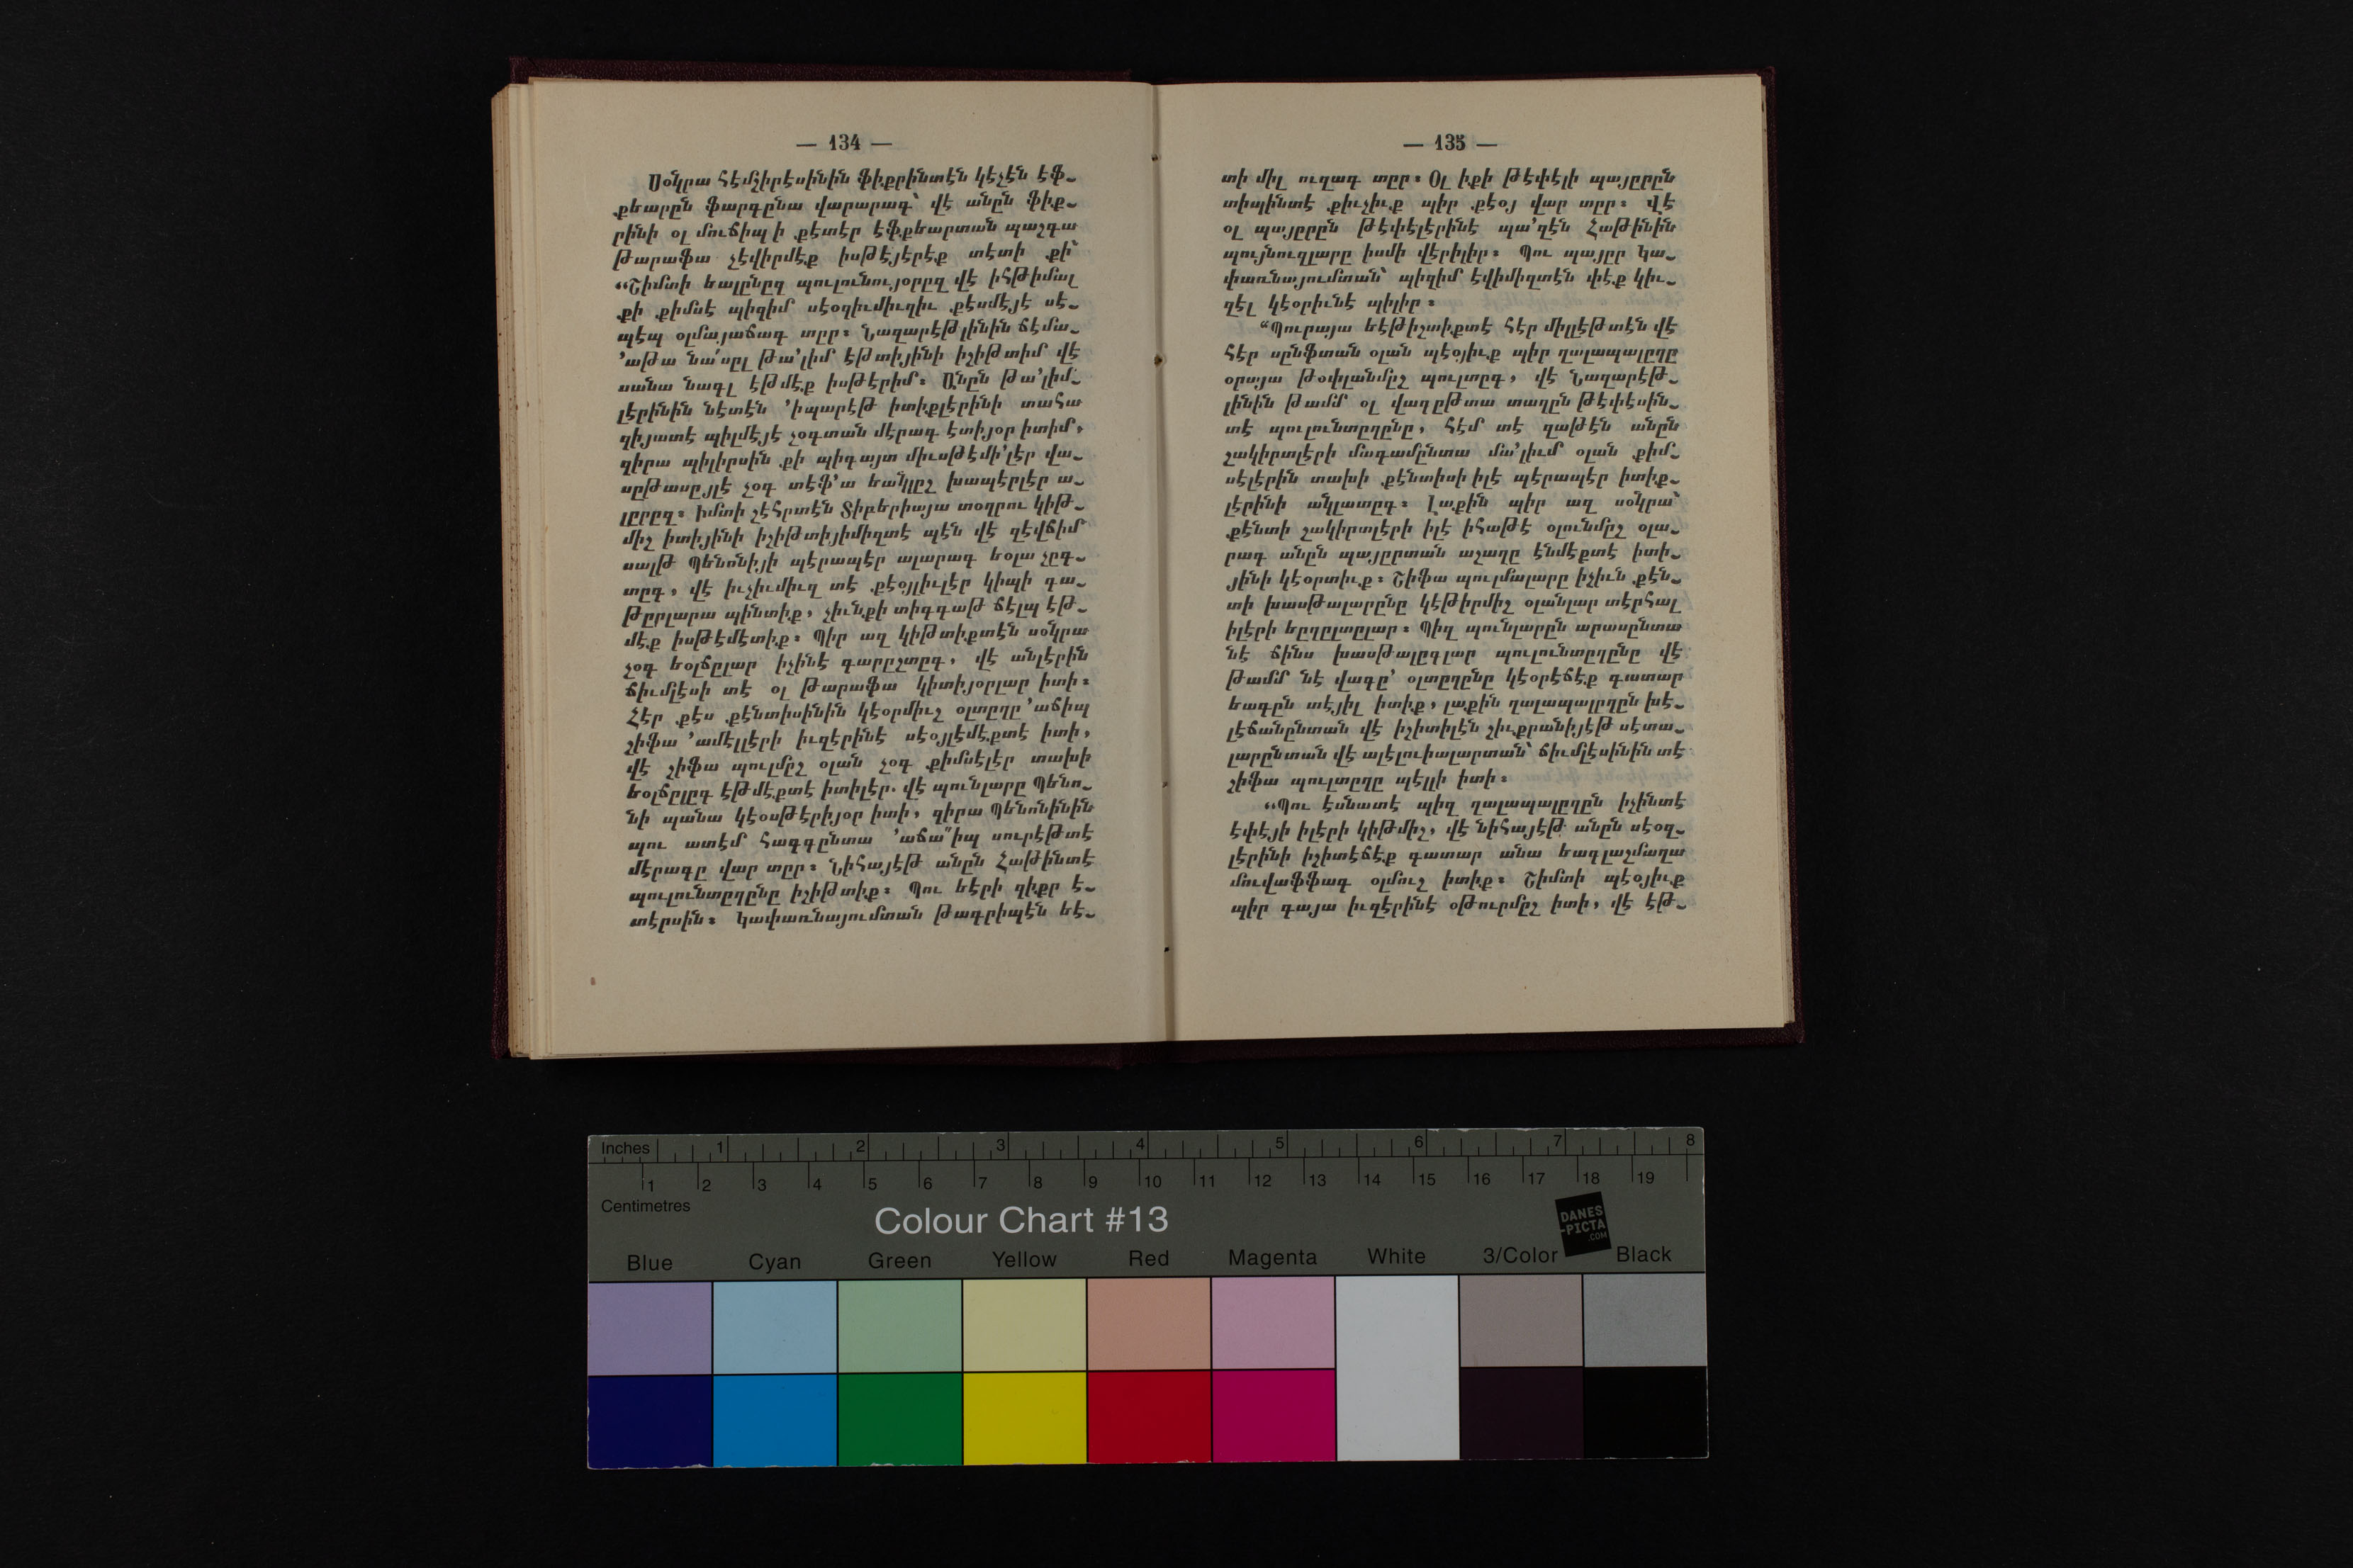 — 134 —
Սօկրա հէմշիրէսինին ֆիքրինտէն կէչէն էֆ֊
քեարըն ֆարգընա վարարագ՝ վէ անըն ֆիք֊
րինի օլ մուճիպ ի քէտէր էֆքեարտան պաշգա
թարաֆա չէվիրմէք իսթէյէրէք տէտի քի՝
“Շիմտի եալընըզ պուլունույօրըզ վէ իհթիմալ
քի քիմսէ պիզիմ սէօզիւմիւզիւ քէսմէյէ սէ֊
պէպ օլմայաճագ տըր։ Նազարէթլինին ճէմա֊
՚աթա նա՛սըլ թա՚լիմ էթտիյինի իշիթտիմ վէ
սանա նագլ էթմէք իսթէրիմ։ Անըն թա՚լիմ֊
լէրինին նէտէն ՚իպարէթ իտիքլէրինի տահա
զիյատէ պիլմէյէ չօգտան մէրագ էտիյօր իտիմ,
զիրա պիլիրսին քի պիգայտ միւսթէմի՚լէր վա֊
սըթասըյլէ չօգ տէֆ՚ա եանլըշ խապէրլէր ա֊
լըրըզ։ Իմտի շէհրտէն Տիբերիայա տօղրու կիթ֊
միշ իտիյինի իշիթտիյիմիզտէ պէն վէ զէվճիմ
սալթ Պենոնիյի պէրապէր ալարագ եօլա չըգ֊
տըգ, վէ իւչիւմիւզ տէ քէօյլիւլէր կիպի գա֊
թըրլարա պինտիք, չիւնքի տիգգաթ ճէլպ էթ֊
մէք իսթէմէտիք։ Պիր ազ կիթտիքտէն սօկրա
չօգ եօլճըլար իչինէ գարըշտըգ, վէ անլէրին
ճիւմլէսի տէ օլ թարաֆա կիտիյօրլար իտի։
Հէր քէս քէնտիսինին կէօրմիւշ օլտըղը ՚աճիպ
շիֆա ՚ամէլլէրի իւզէրինէ սէօյլէմէքտէ իտի,
վէ շիֆա պուլմըշ օլան չօգ քիմսէլէր տախի
եօլճըլըգ էթմէքտէ իտիլէր. վէ պունլարը Պենո֊
նի պանա կէօսթէրիյօր իտի, զիրա Պենոնինին
պու ատէմ հագգընտա ՚աճա՞իպ սուրէթտէ
մէրագը վար տըր։ Նիհայէթ անըն Հաթինտէ
պուլունտըղընը իշիթտիք։ Պու եէրի զիքր է֊
տէրսին։ Կափառնայումտան թագրիպէն եէ֊
— 135 —
տի միլ ուզագ տըր։ Օլ իքի թէփէլի պայըրըն
տիպինտէ քիւչիւք պիր քէօյ վար տըր։ Վէ
օլ պայըրըն թէփէլէրինէ պա՚զէն Հաթինին
պույնուզլարը իսմի վէրիլիր։ Պու պայըր Կա֊
փառնայումտան՝ պիզիմ էվիմիզտէն փէք կիւ֊
զէլ կէօրիւնէ պիլիր։
“Պուրայա եէթիշտիքտէ հէր միլլէթտէն վէ
հէր սընֆտան օլան պէօյիւք պիր ղալապալըղը
օրայա թօփլանմըշ պուլտըգ, վէ Նազարէթ֊
լինին թամմ օլ վաղըթտա տաղըն թէփէսին֊
տէ պուլունտըղընը, հէմ տէ զաթէն անըն
շակիրտլէրի մագամընտա մա՚լիւմ օլան քիմ֊
սէլէրին տախի քէնտիսի իլէ պէրապէր իտիք֊
լէրինի ակլատըգ։ Լաքին պիր ազ սօկրա՝
քէնտի շակիրտլէրի իլէ իհաթէ օլունմըշ օլա֊
րագ անըն պայըրտան աշաղը էնմէքտէ իտի֊
յինի կէօրտիւք։ Շիֆա պուլմալարը իչիւն քէն֊
տի խասթալարընը կէթիրմիշ օլանլար տէրհալ
իլէրի եըղըլտըլար։ Պիզ պունլարըն արասընտա
նէ ճինս խասթալըգլար պուլունտըղընը վէ
թամմ նէ վագը՚ օլտըղընը կէօրէճէք գատար
եագըն տէյիլ իտիք, լաքին ղալապալըղըն խէ֊
լէճանընտան վէ իշիտիլէն շիւքրանիյէթ սէտա֊
լարընտան վէ ալէլուիալարտան՝ ճիւմլէսինին տէ
շիֆա պուլտըղը պէլլի իտի։
“Պու էսնատէ պիզ ղալապալըղըն իչինտէ
էփէյի իլէրի կիթմիշ, վէ նիհայէթ անըն սէօզ֊
լէրինի իշիտէճէք գատար անա եագլաշմաղա
մուվաֆֆագ օլմուշ իտիք։ Շիմտի պէօյիւք
պիր գայա իւզէրինէ օթուրմըշ իտի, վէ էթ֊
Inches 1 2 3 4 5 6 7 8
1 2 3 4 5 6 7 8 9 10 11 12 13 14 15 16 17 18 19
Centimetres
Colour Chart #13
DANES
-PICTA
.COM
Blue Cyan Green Yellow Red Magenta White 3/Color Black